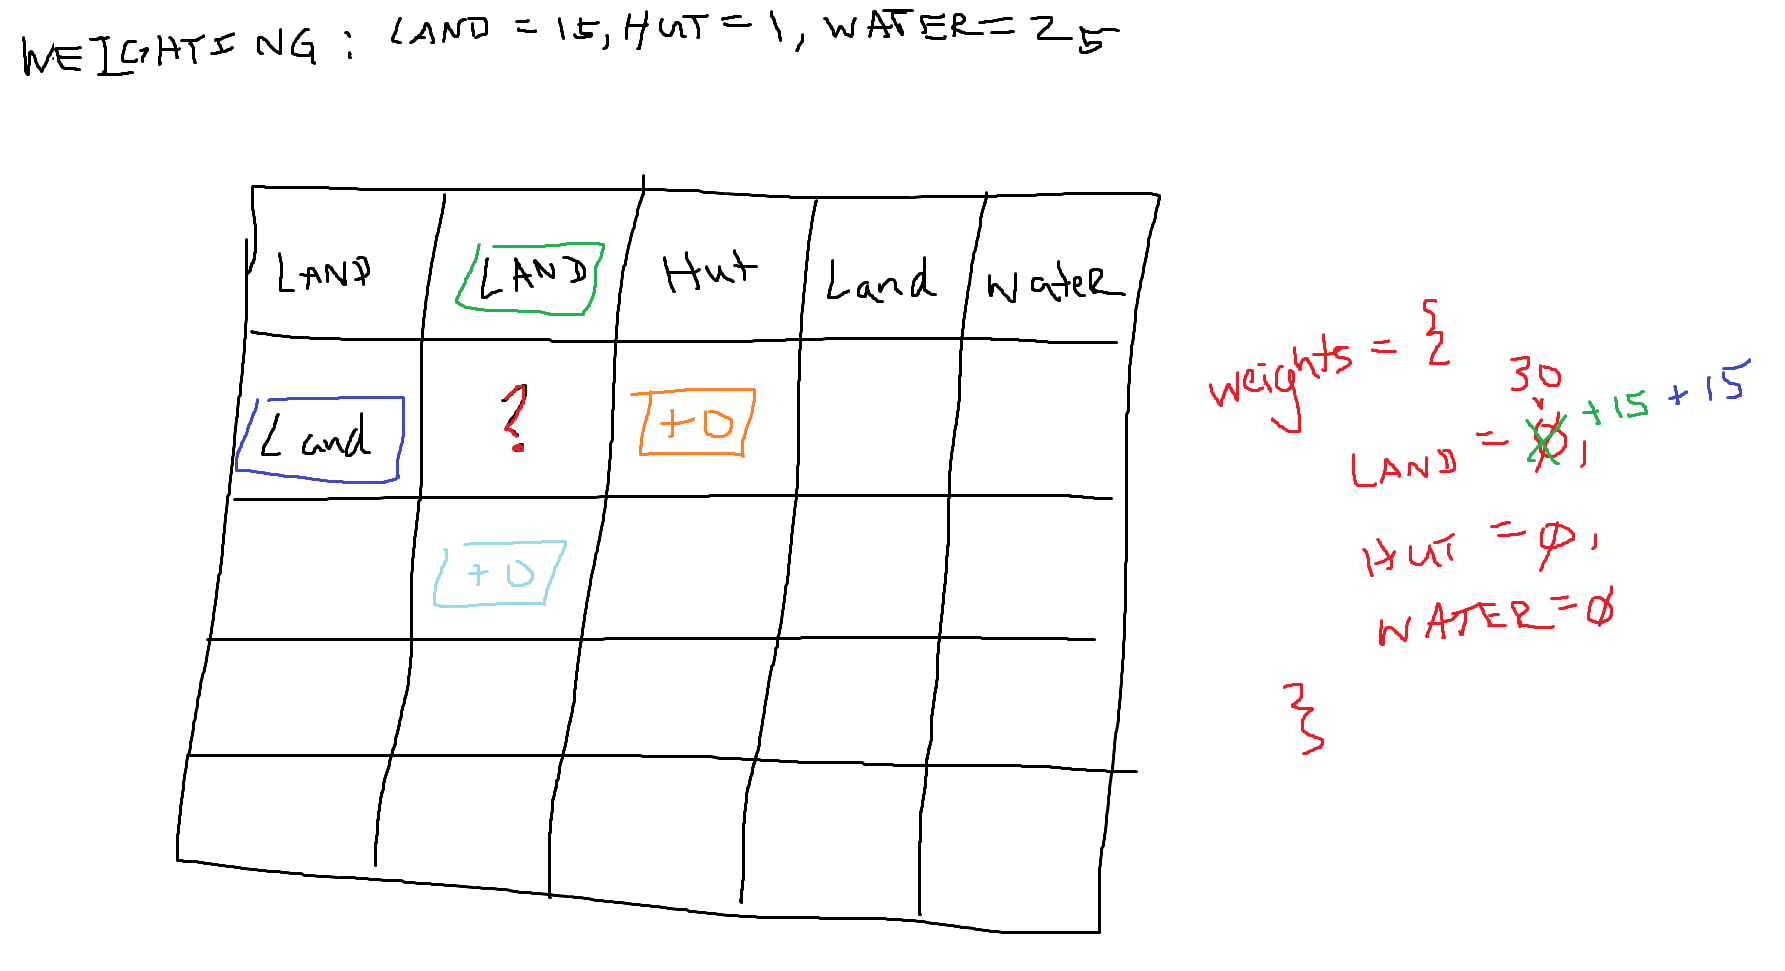 WEIGHTING: LAND = 15, HUT = 1, WATER = 25
LAND LAND Hut Land WateR
Land ? +0
+0
weights = {
30
LAND = 0, +15 +15
HUT = 0,
WATER = 0
}